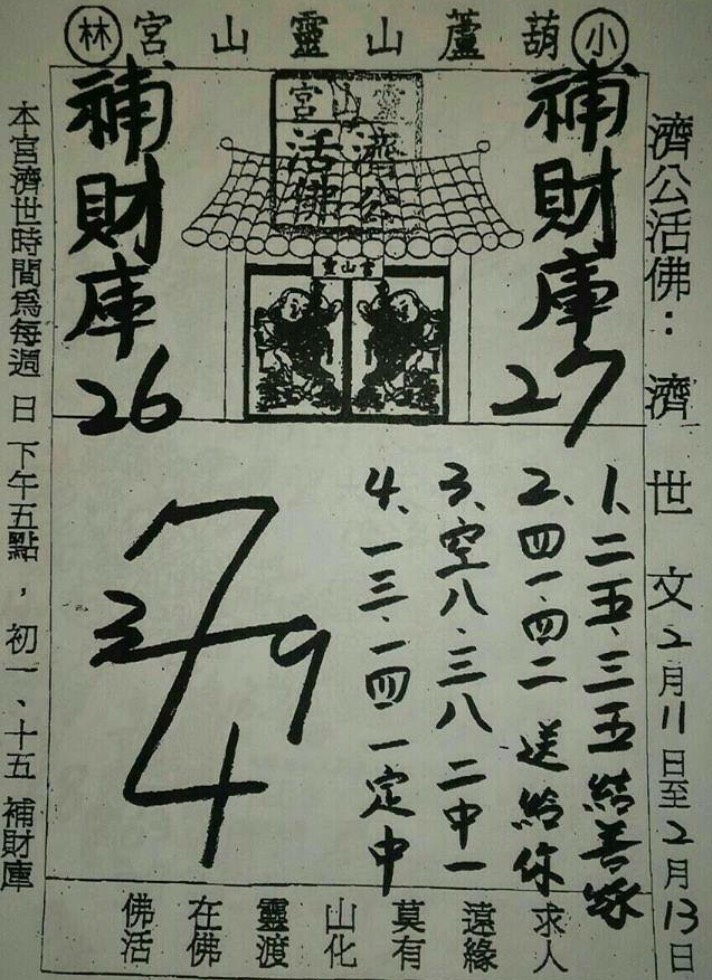 小葫蘆山靈山宮林
濟公活佛：濟世文2月11日至2月13日
補財庫27
靈山宮
濟公活佛
靈山宮
補財庫26
1、二五.三五結善緣
2、四一.四二送給你
3、空八.三八二中一
4、一三.一四一定中
7
3 9
4
佛在靈山莫遠求
活佛渡化有緣人
本宮濟世時間為每週日下午五點，初一、十五補財庫